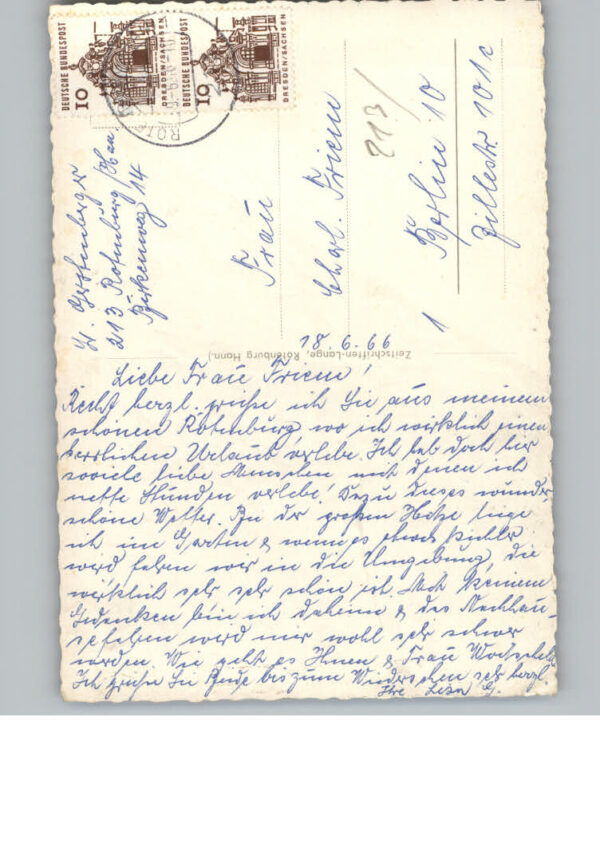 DEUTSCHE BUNDESPOST
10
DRESDEN/SACHSEN
DEUTSCHE BUNDESPOST
10
DRESDEN/SACHSEN
213 Rotenburg/Han
Birkenweg 14
Frau
Charl. Friem
213/
1 Berlin 10
Zillestr 101c
Zeitschriften-Lange, Rotenburg Hann.
18.6.66
Liebe Frau Friem!
Recht herzl. grüße ich Sie aus meinem
schönen Rotenburg, wo ich wirklich einen
herrlichen Urlaub verlebe. Ich hab doch hier
soviele liebe Menschen mit denen ich
nette Stunden verlebe! Dazu dieses wunder
schöne Wetter. Bei der großen Hitze liege
ich im Garten & wenn es etwas kühler
wird fahren wir in die Umgebung, die
wirklich sehr sehr schön ist. Mit keinem
Gedanken bin ich daheim & das Nachhau-
sefahren wird mir wohl sehr schwer
werden. Wie geht es Ihnen & Frau
Ich grüße Sie Beide bis zum Wiedersehen sehr herzl.
Ihre Lisa G.